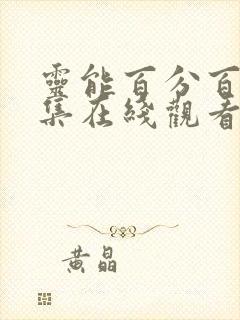 靈能百分百
集在綫觀看
黄晶